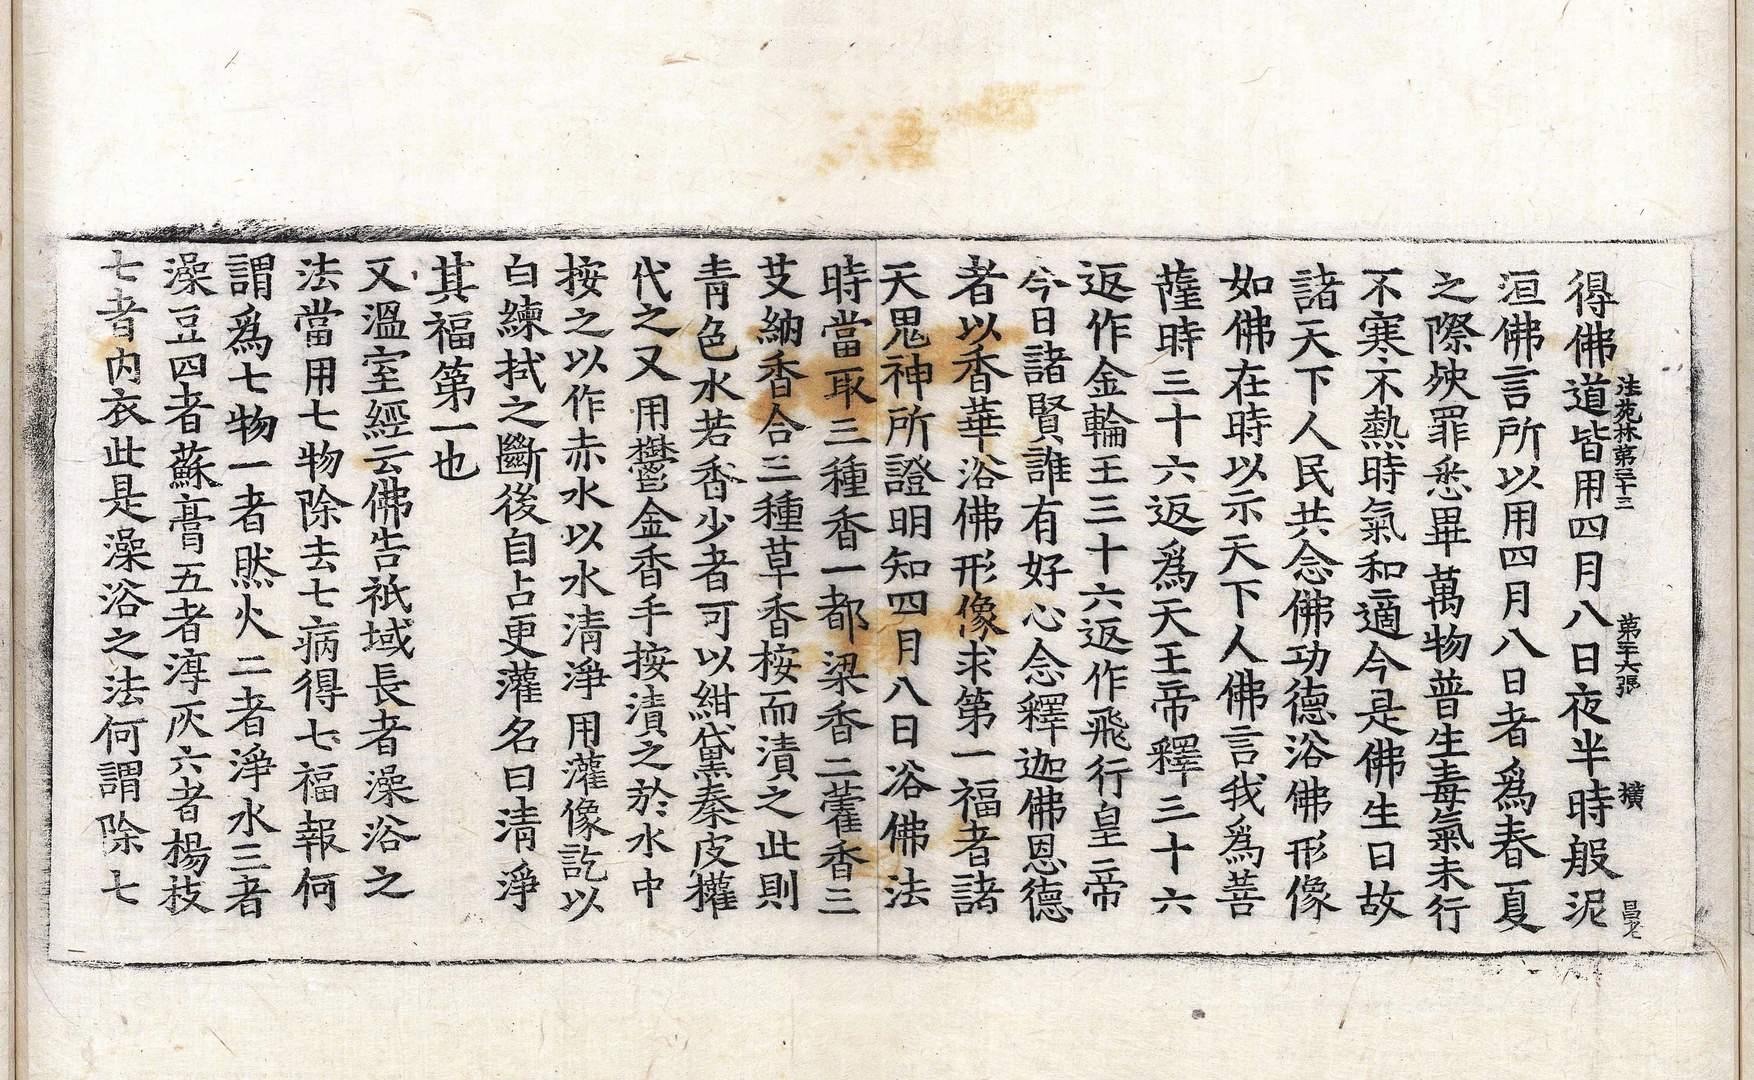 法苑林第三十三 第二十六張 橫 昌老
得佛道皆用四月八日夜半時般泥
洹佛言所以用四月八日者爲春夏
之際殃罪悉畢萬物普生毒氣未行
不寒不熱時氣和適今是佛生日故
諸天下人民共念佛功德浴佛形像
如佛在時以示天下人佛言我爲菩
薩時三十六返爲天王帝釋三十六
返作金輪王三十六返作飛行皇帝
今日諸賢誰有好心念釋迦佛恩德
者以香華浴佛形像求第一福者諸
天鬼神所證明知四月八日浴佛法
時當取三種香一都梁香二藿香三
艾納香合三種草香桉而漬之此則
靑色水若香少者可以紺黛秦皮權
代之又用鬱金香手桉漬之於水中
桉之以作赤水以水清淨用灌像訖以
白練拭之斷後自占更灌名曰清淨
其福第一也
又溫室經云佛告祇域長者澡浴之
法當用七物除去七病得七福報何
謂爲七物一者然火二者淨水三者
澡豆四者蘇膏五者淳灰六者楊枝
七者內衣此是澡浴之法何謂除七